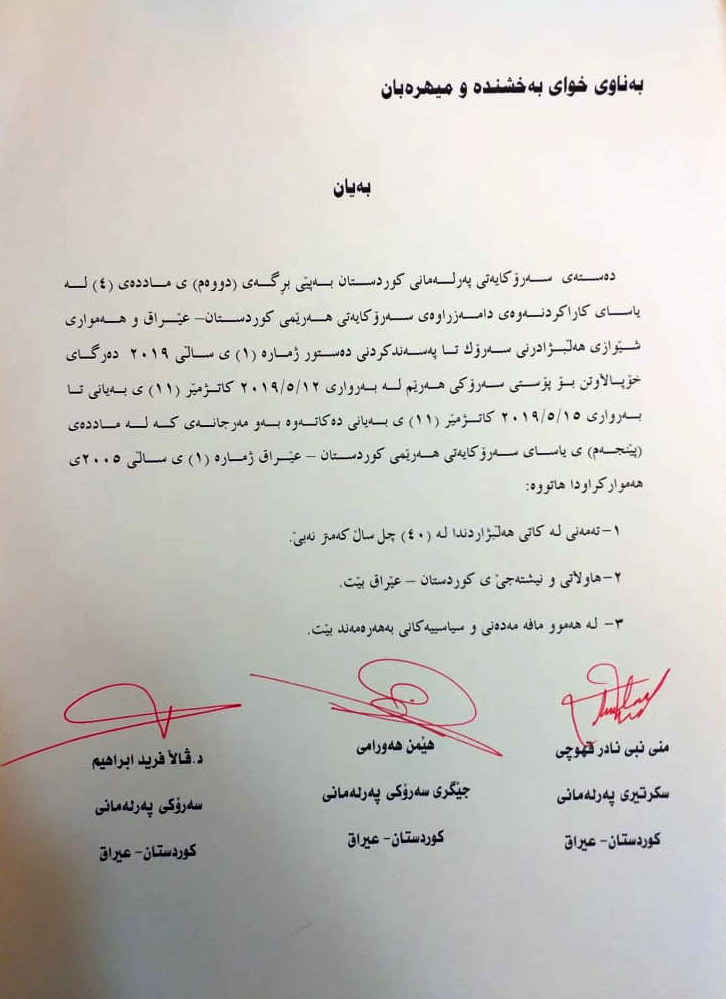 بەناوی خوای بەخشندە و میهرەبان
بەیان
دەستەی سەرۆکایەتی پەرلەمانی کوردستان بەپێی برگەی (دووەم) ی ماددەی (٤) لە
یاسای کاراکردنەوەی دامەزراوەی سەرۆکایەتی هەرێمی کوردستان– عێراق و هەمواری
شێوازی هەڵبژادرنی سەرۆك تا پەسەندکردنی دەستور ژمارە (١) ی ساڵی ٢٠١٩ دەرگای
خۆپاڵاوتن بۆ پۆستی سەرۆکی هەرێم لە بەرواری ٢٠١٩/٥/١٢ کاتژمێر (١١) ی بەیانی تا
بەرواری ٢٠١٩/٥/١٥ کاتژمێر (١١) ی بەیانی دەکاتەوە بەو مەرجانەی کە لە ماددەی
(پێنجەم) ی یاسای سەرۆکایەتی هەرێمی کوردستان – عێراق ژمارە (١) ی ساڵی ٢٠٠٥ی
هەموارکراودا هاتووە:
١–تەمەنی لە کاتی هەڵبژاردندا لە (٤٠) چل ساڵ کەمتر نەبێ.
٢–هاوڵاتی و نیشتەجێ ی کوردستان – عێراق بێت.
٣– لە هەموو مافە مەدەنی و سیاسییەکانی بەهرەمەند بێت.
منی نبی نادر قهوچی
سکرتیری پەرلەمانی
کوردستان– عیراق
هێمن هەورامی
جێگری سەرۆکی پەرلەمانی
کوردستان– عیراق
د.ڤاڵا فرید ابراهیم
سەرۆکی پەرلەمانی
کوردستان– عیراق